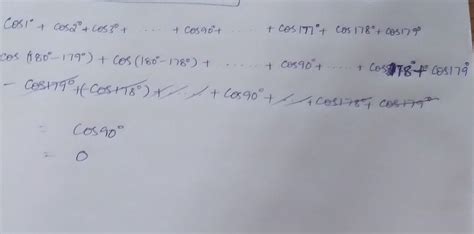 cos1° + cos2° + cos3° + ..... + cos90° + ..... + cos177° + cos178° + cos179°
cos (180° - 179°) + cos (180° - 178°) + ..... + cos90° + ..... + cos178° + cos179°
- cos179° + (-cos178°) + ..... + cos90° + ..... + cos178° + cos179°
= cos90°
= 0